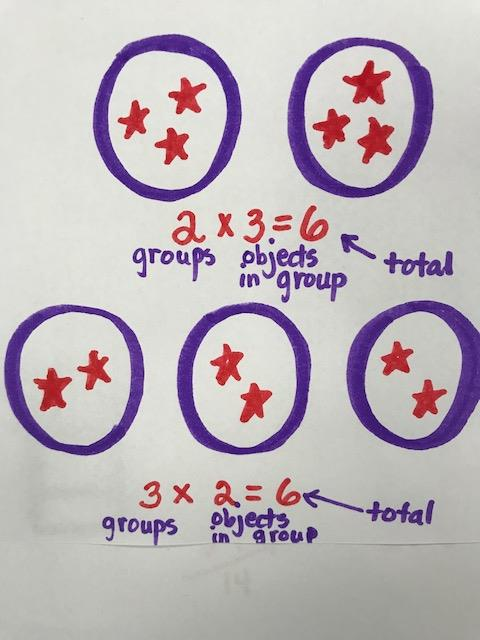 2 x 3 = 6
groups objects in group total
3 x 2 = 6
groups objects in group total
14